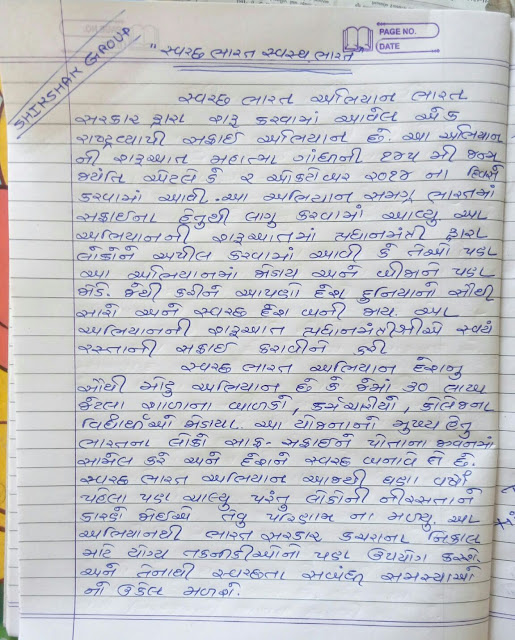 PAGE NO.
DATE
SHIKSHAK GROUP
"સ્વચ્છ ભારત સ્વસ્થ ભારત
સ્વચ્છ ભારત અભિયાન ભારત
સરકાર દ્વારા શરૂ કરવામાં આવેલ એક
રાષ્ટ્રવ્યાપી સફાઈ અભિયાન છે. આ અભિયાન
ની શરૂઆત મહાત્મા ગાંધીની ૧૪૫ મી જન્મ
જયંતિ એટલે કે ૨ ઓક્ટોબર ૨૦૧૪ ના દિવસે
કરવામાં આવી. આ અભિયાન સમગ્ર ભારતમાં
સફાઈના હેતુથી લાગુ કરવામાં આવ્યુ આ
અભિયાનની શરૂઆતમાં પ્રધાનમંત્રી દ્વારા
લોકોને અપીલ કરવામાં આવી કે તેઓ પણ
આ અભિયાનમાં જોડાય અને બીજાને પણ
જોડે. જેથી કરીને આપણો દેશ દુનિયાનો સૌથી
સારો અને સ્વચ્છ દેશ બની જાય. આ
અભિયાનની શરૂઆત પ્રધાનમંત્રીશ્રીએ સ્વયં
રસ્તાની સફાઈ કરાવીને કરી
સ્વચ્છ ભારત અભિયાન દેશનુ
સૌથી મોટુ અભિયાન છે કે જેમાં ૩૦ લાખ
જેટલા શાળાના બાળકો, કર્મચારીયો, કોલેજના
વિદ્યાર્થીઓ જોડાયા. આ યોજનાનો મુખ્ય હેતુ
ભારતના લોકો સાફ-સફાઈને પોતાના જીવનમાં
સામેલ કરે અને દેશને સ્વચ્છ બનાવે તે છે.
સ્વચ્છ ભારત અભિયાન આજથી ઘણા વર્ષો
પહેલા પણ ચાલ્યુ પરંતુ લોકોની નીરસતાને
કારણે જોઈએ તેવુ પરિણામ ના મળ્યુ. આ
અભિયાનથી ભારત સરકાર કચરાના નિકાલ
માટે યોગ્ય તકનીકીઓનો પણ ઉપયોગ કરશે.
અને તેનાથી સ્વચ્છતા સબંધિત સમસ્યાઓ
નો ઉકેલ મળશે.